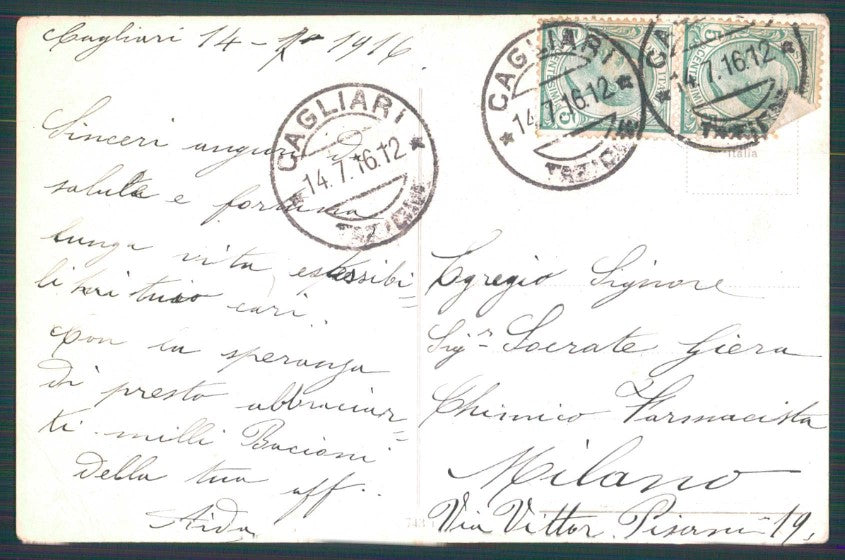 Cagliari 14 - 7 1916
Sinceri auguri di
salute e fortuna
lunga vita
cari..
con la speranza
di presto abbracciar=
ti milli Bacioni
Della tua aff..
Aida
CAGLIARI
14.7.16.12
CAGLIARI
14.7.16.12
14.7.16.12
Italia
Egregio Signore
Sigr Socrate Giera
Chimico Farmacista
Milano
Via Vittor Pisani 19,